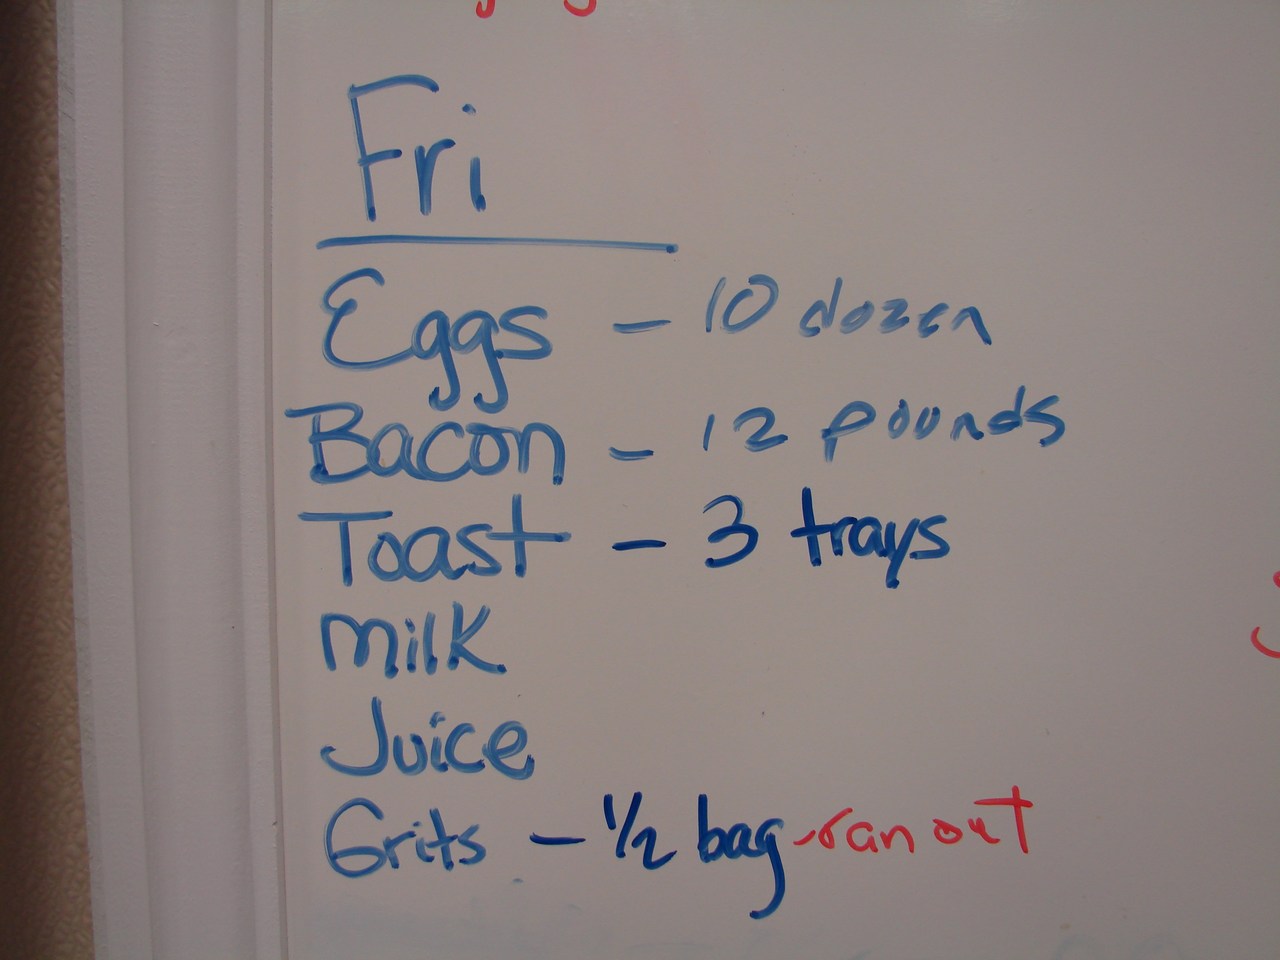 Fri
Eggs - 10 dozen
Bacon - 12 pounds
Toast - 3 trays
Milk
Juice
Grits - 1/2 bag - ran out